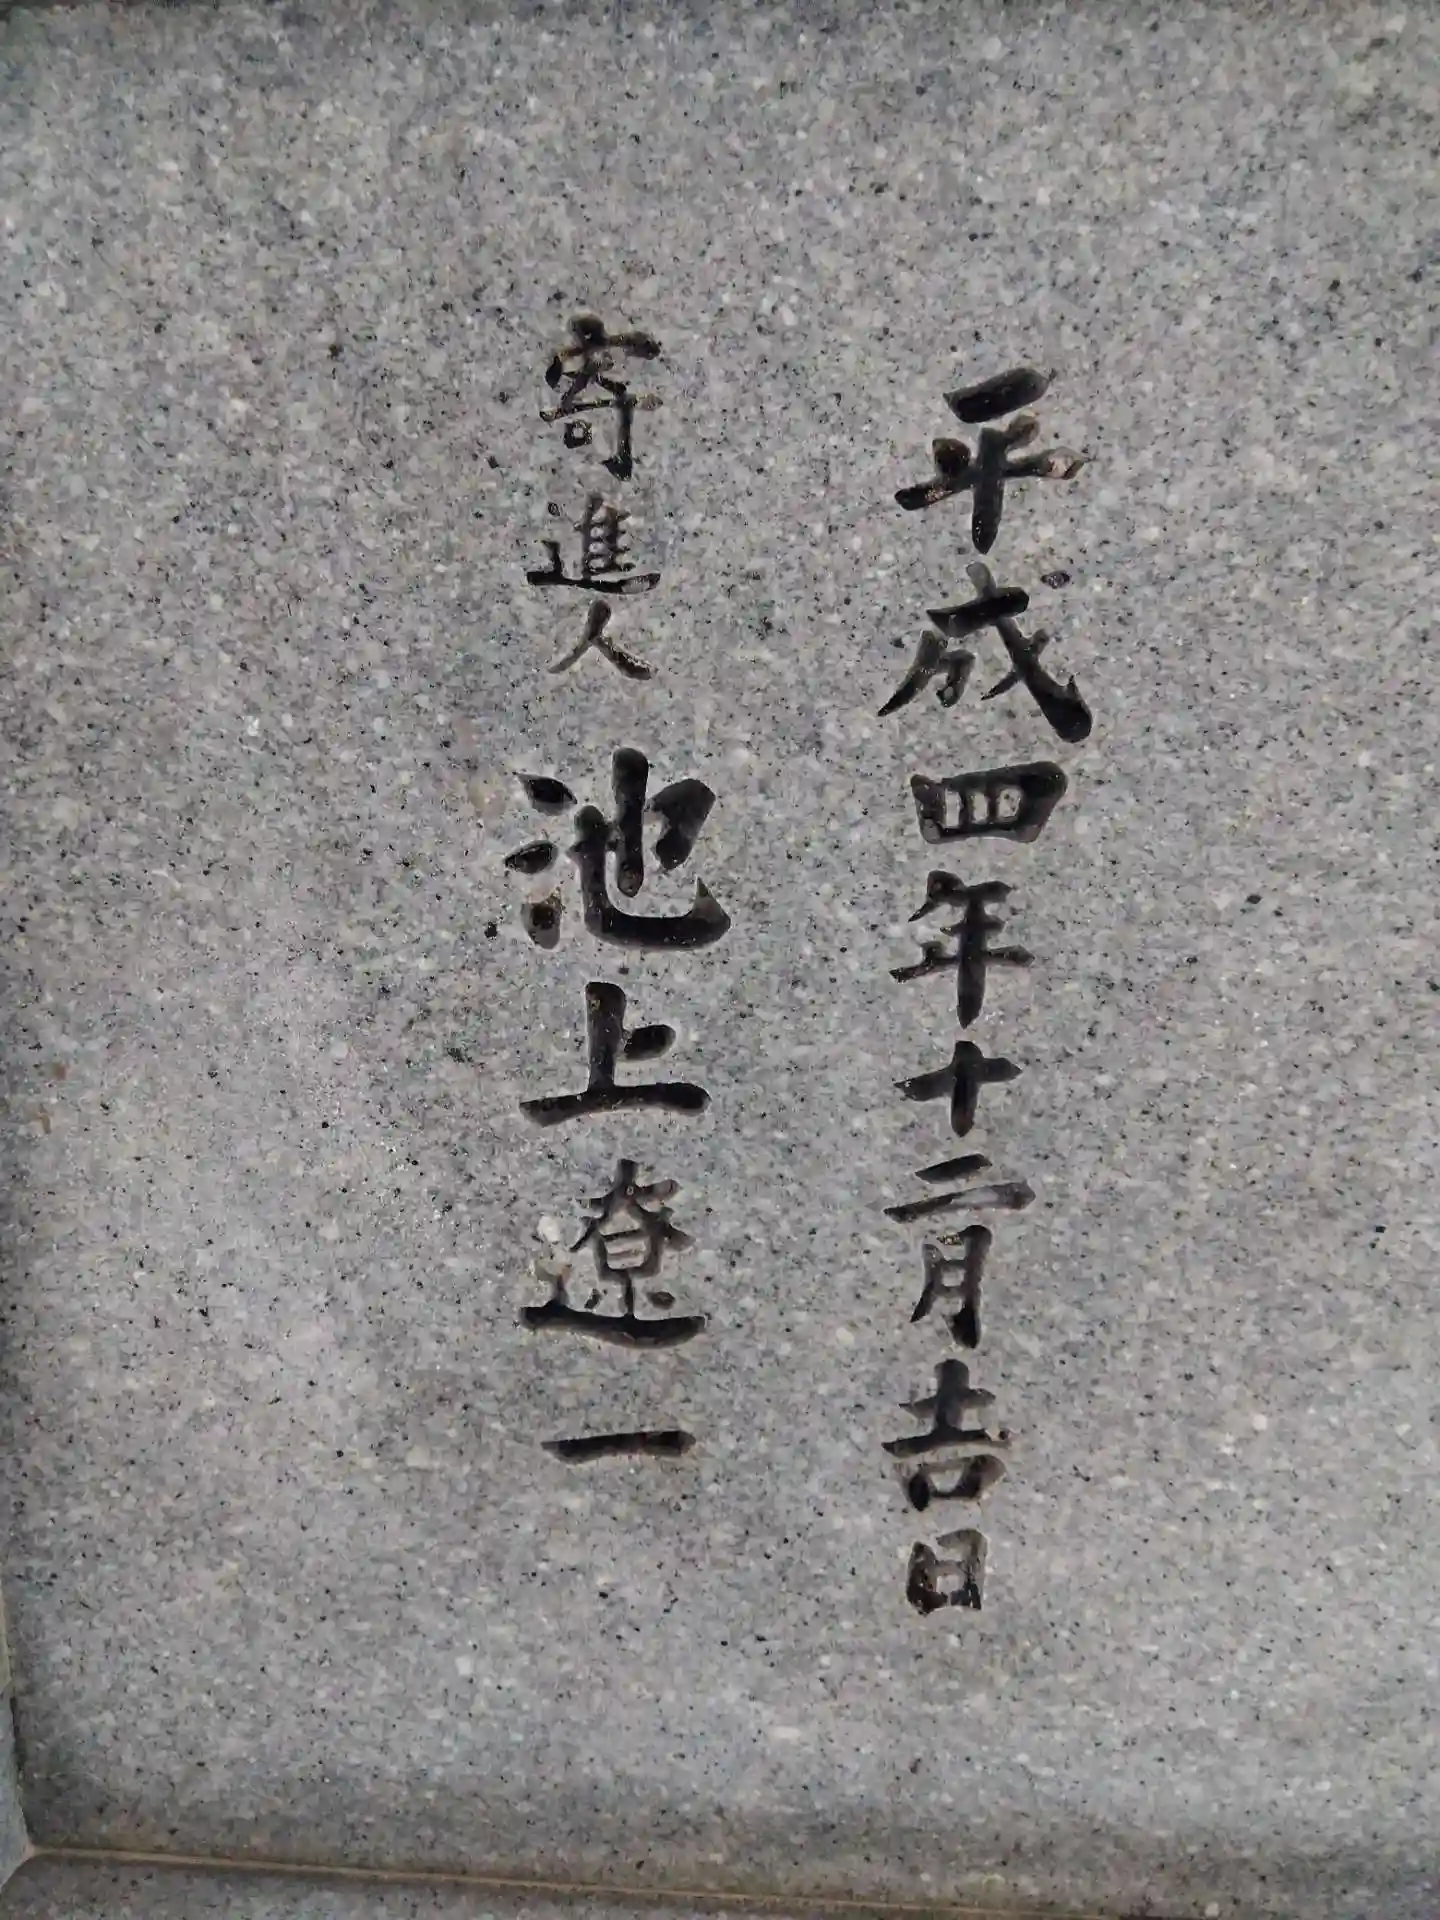 平成四年十二月吉日
寄進人 池上遼一